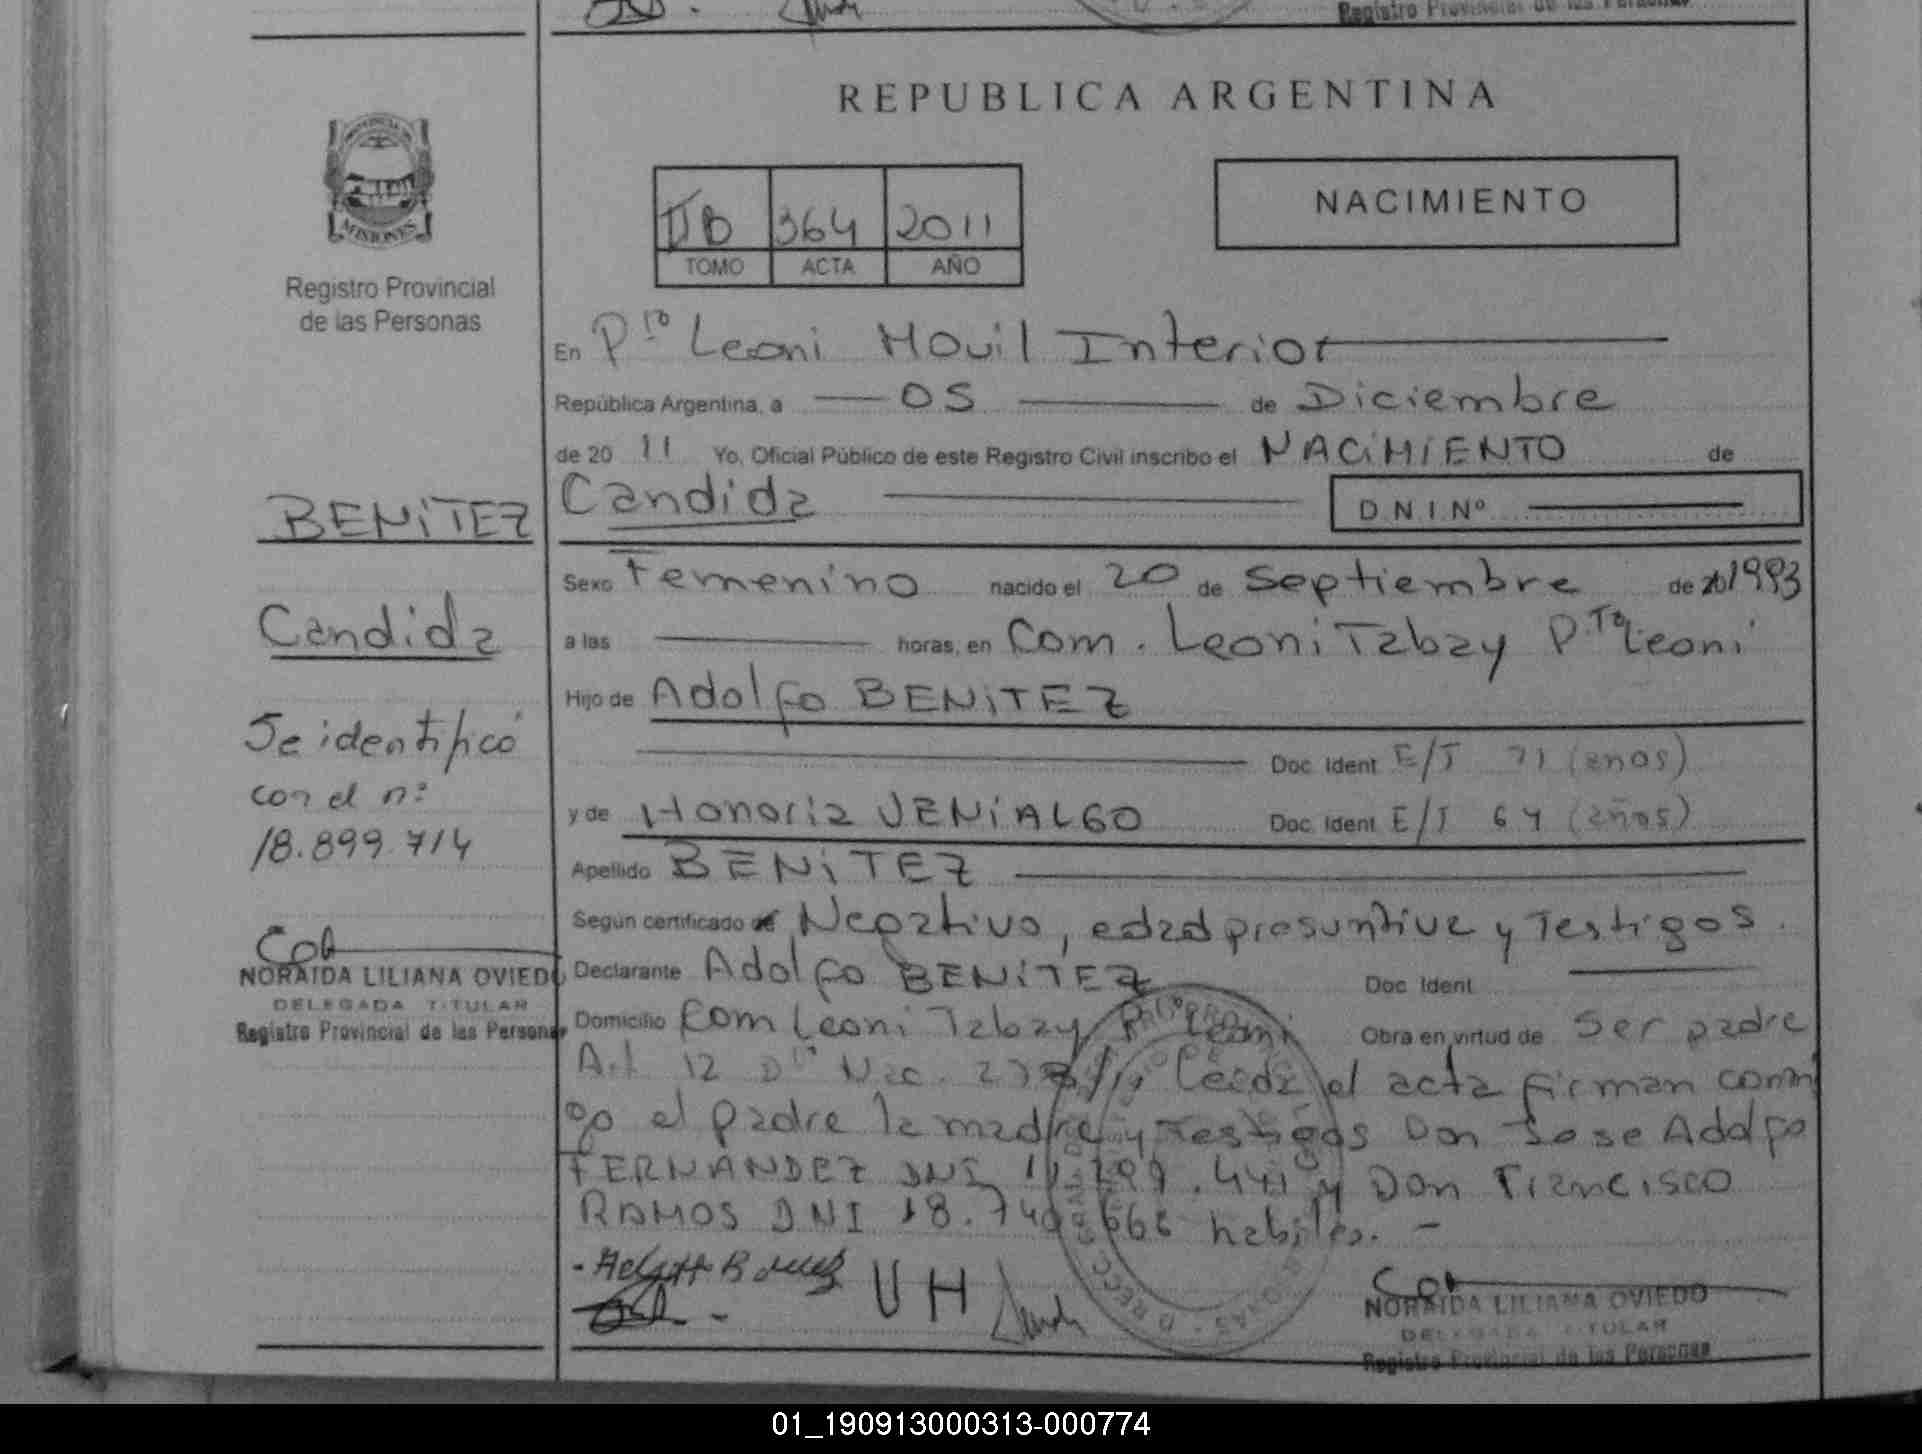 Registro Provincial de las Personas
REPUBLICA ARGENTINA
PROVINCIA DE
MISIONES
Registro Provincial
de las Personas
II B 364 2011
TOMO ACTA AÑO
NACIMIENTO
En Pto Leoni Movil Interior
República Argentina, a 05 de Diciembre
de 2011 Yo, Oficial Público de este Registro Civil inscribo el NACiMiENTO de
Candida D.N.I. Nº
BENiTEZ
Candida
Se identificó
con el n:
18.899.714
Cob
NORAIDA LILIANA OVIEDO
DELEGADA TITULAR
Registro Provincial de las Personas
Sexo Femenino nacido el 20 de Septiembre de 1993
a las horas, en Com. Leoni Tabay P.to Leoni
Hijo de Adolfo BENiTEZ
Doc. Ident. E/T 71 (años)
y de Honoria VENiALGO Doc. Ident. E/T 64 (años)
Apellido BENiTEZ
Según certificado de Negativo, edad presuntiva y Testigos.
Declarante Adolfo BENiTEZ Doc. Ident.
Domicilio Com Leoni Tabay Pto Leoni Obra en virtud de Ser padre
Art 12 Dto Nac. Leida el acta firman conmi
go el padre la madre y testigos Don Jose Adolfo
FERNANDEZ DNI y Don Francisco
RAMOS DNI 18. habiles. -
VH
Cob
NORAIDA LILIANA OVIEDO
DELEGADA TITULAR
Registro Provincial de las Personas
01_190913000313-000774